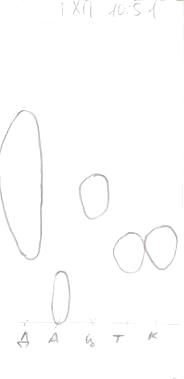 1 XII 10:51
Д А Ц Т К